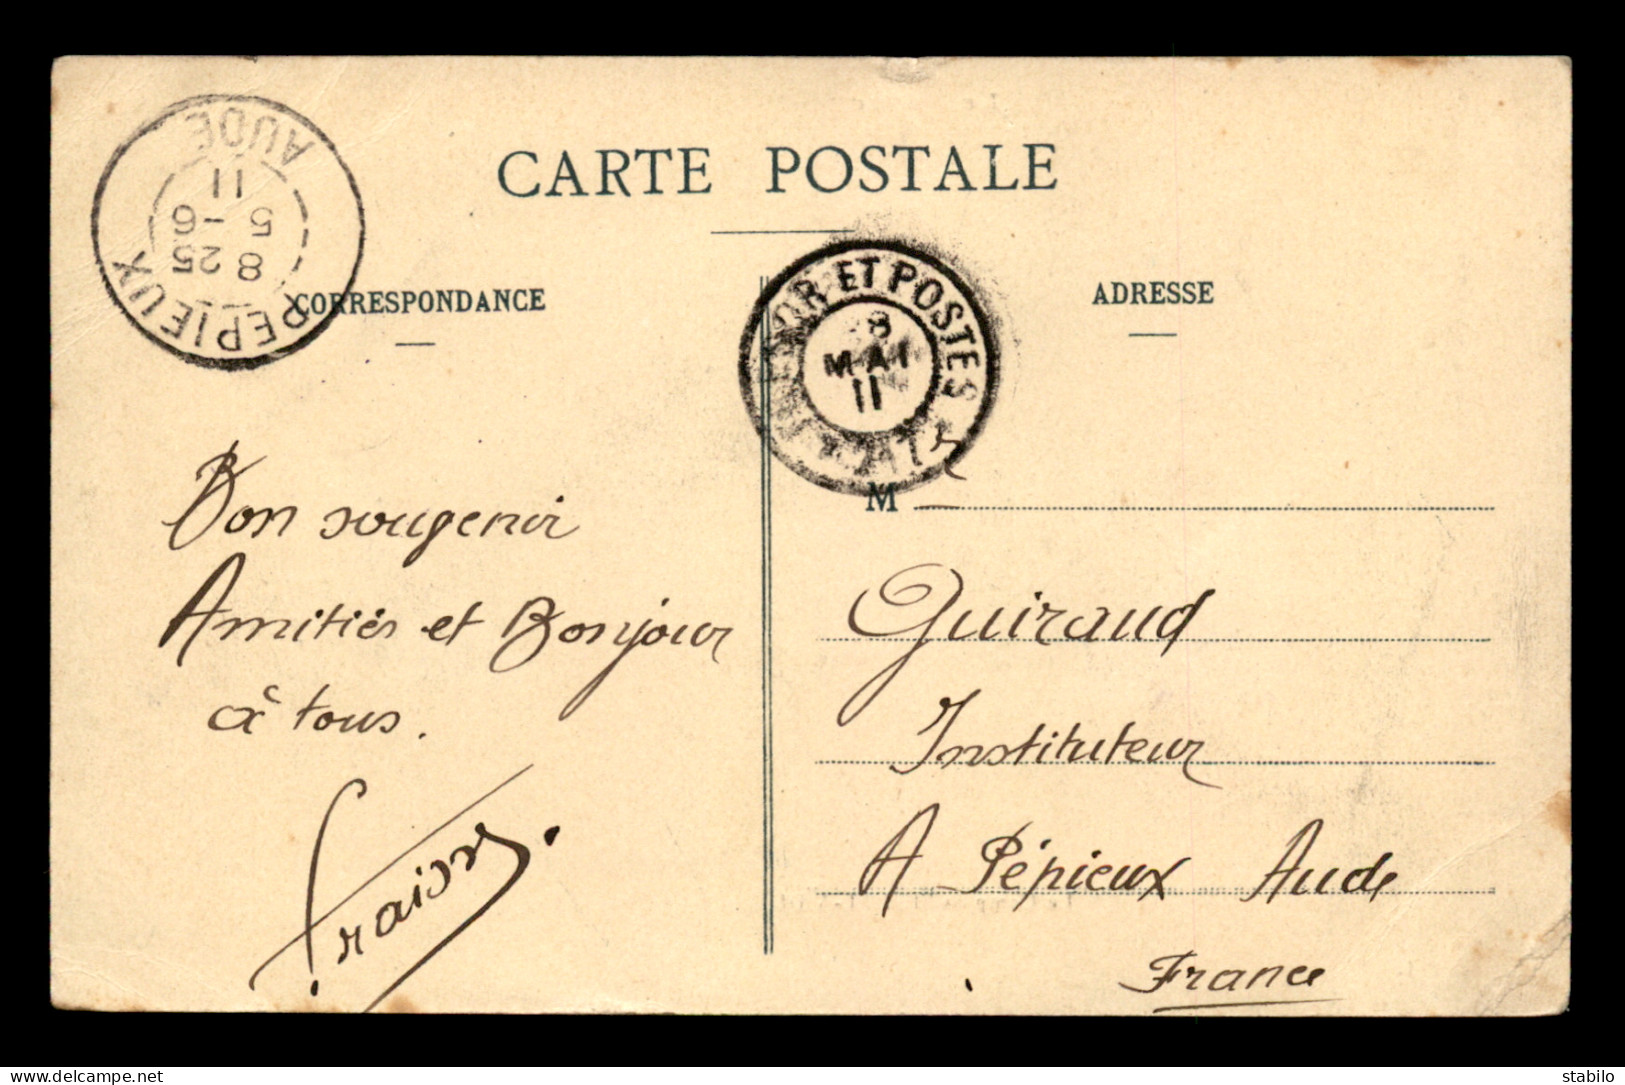 CARTE POSTALE
PEPIEUX
AUDE
8
25
5 -6
11
TRESOR ET POSTES
8
MAI
11
CORRESPONDANCE
ADRESSE
Bon souvenir
Amitiés et Bonjour
à tous.
M
Guiraud
Instituteur
A Pépieux Aude
France
delcampe.net
stabilo